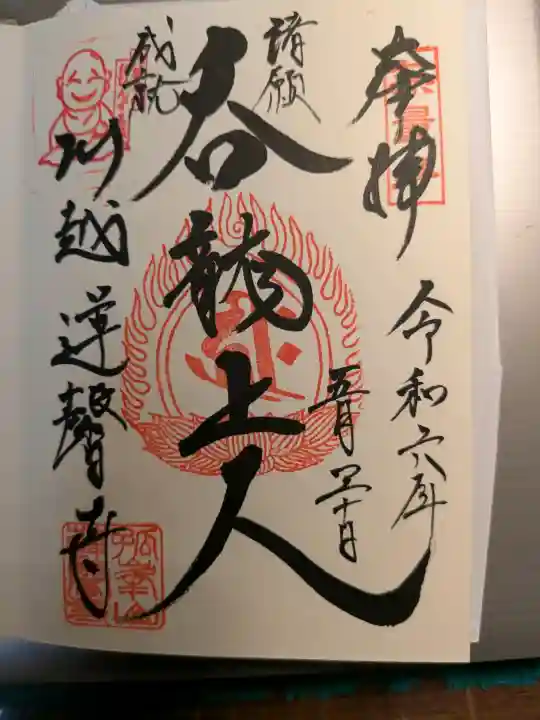 奉拝
令和六年
五月二十日
諸願
呑龍上人
成就
川越蓮馨寺
孤峯山